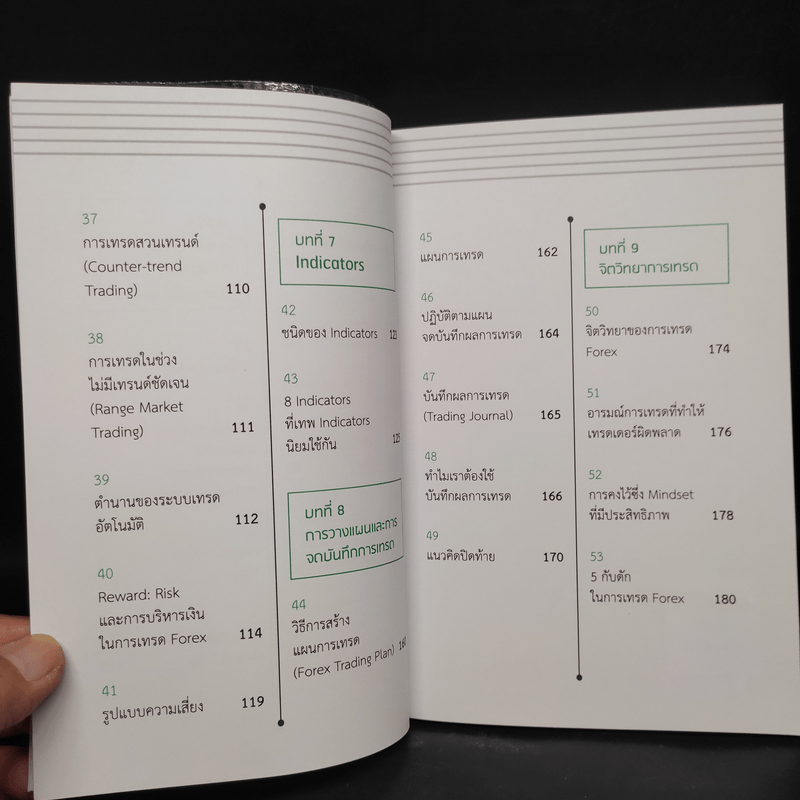 37
การเทรดสวนเทรนด์
(Counter-trend
Trading) 110
38
การเทรดในช่วง
ไม่มีเทรนด์ชัดเจน
(Range Market
Trading) 111
39
ตำนานของระบบเทรด
อัตโนมัติ 112
40
Reward: Risk
และการบริหารเงิน
ในการเทรด Forex 114
41
รูปแบบความเสี่ยง 119
บทที่ 7
Indicators
42
ชนิดของ Indicators
43
8 Indicators
ที่เทพ Indicators
นิยมใช้กัน 125
บทที่ 8
การวางแผนและการ
จดบันทึกการเทรด
44
วิธีการสร้าง
แผนการเทรด
(Forex Trading Plan)
45
แผนการเทรด 162
46
ปฏิบัติตามแผน
จดบันทึกผลการเทรด 164
47
บันทึกผลการเทรด
(Trading Journal) 165
48
ทำไมเราต้องใช้
บันทึกผลการเทรด 166
49
แนวคิดปิดท้าย 170
บทที่ 9
จิตวิทยาการเทรด
50
จิตวิทยาของการเทรด
Forex 174
51
อารมณ์การเทรดที่ทำให้
เทรดเดอร์ผิดพลาด 176
52
การคงไว้ซึ่ง Mindset
ที่มีประสิทธิภาพ 178
53
5 กับดัก
ในการเทรด Forex 180